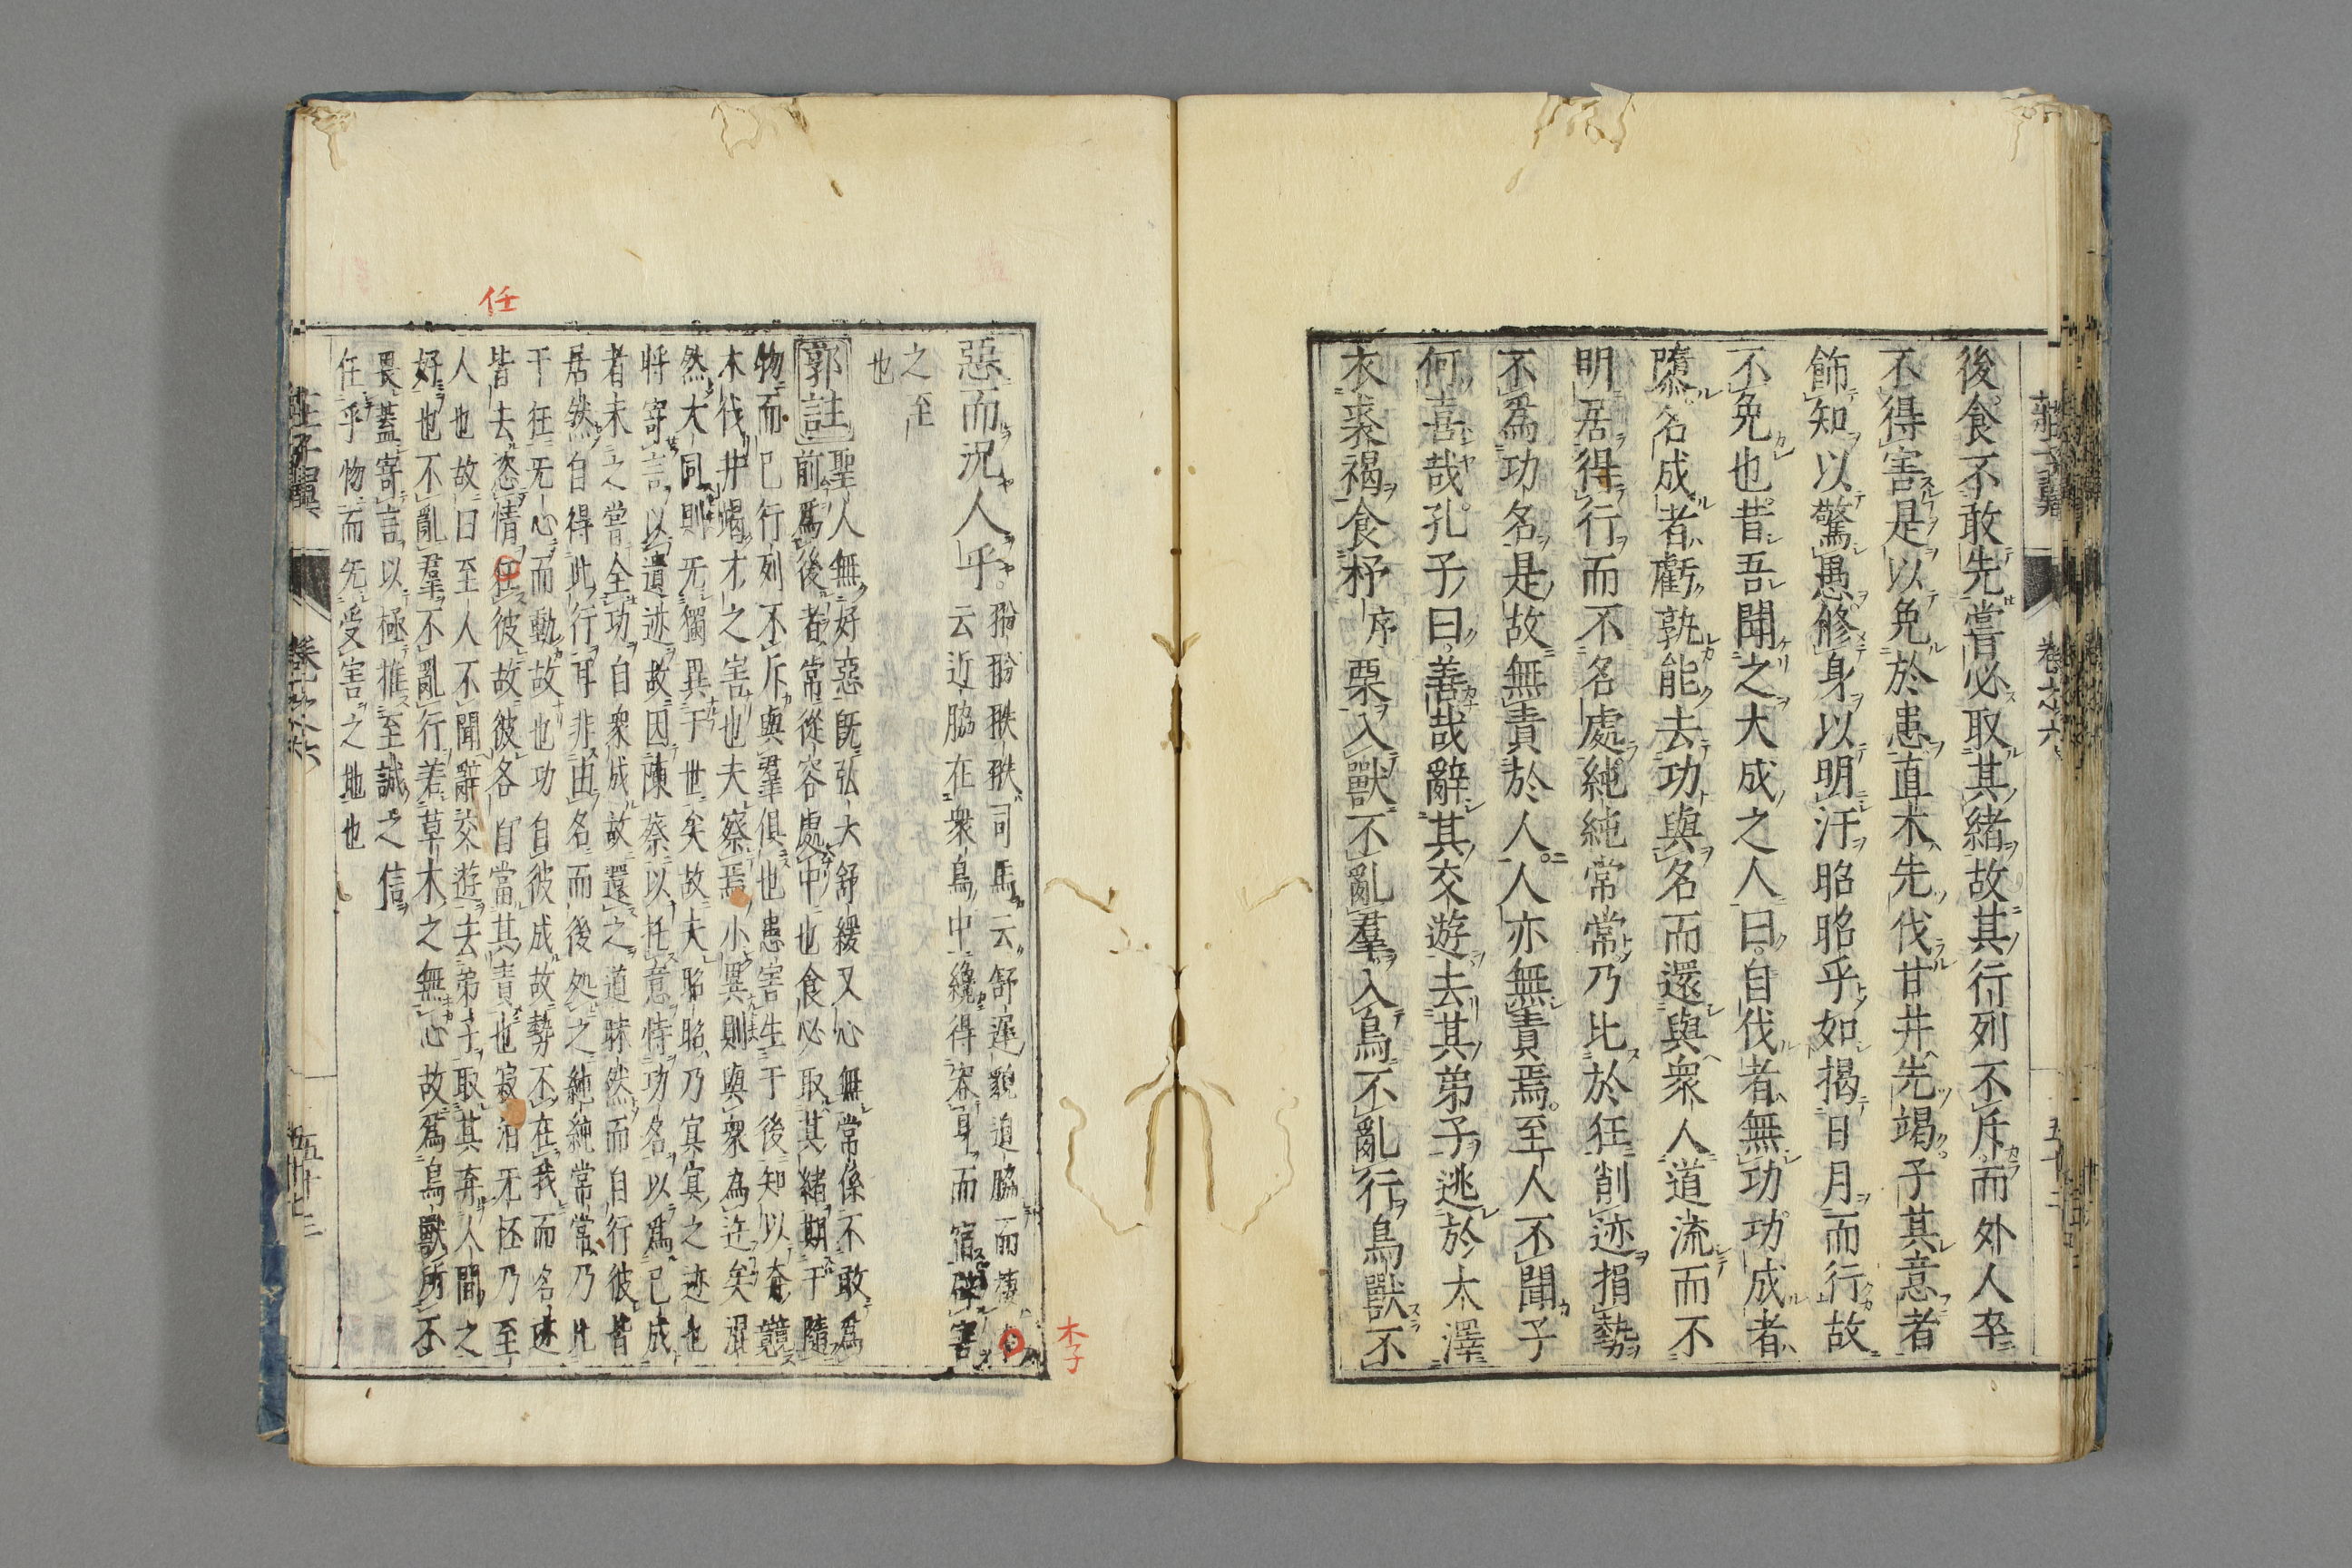 後食不敢先嘗必取其緒故其行列不斥而外人卒
不得害是以免於患直木先伐甘井先竭子其意者
飾知以驚愚修身以明汙昭昭乎如揭日月而行故
不免也昔吾聞之大成之人曰自伐者無功功成者
隳名成者虧孰能去功與名而還與衆人道流而不
明居得行而不名處純純常常乃比於狂削迹捐勢
不爲功名是故無責於人人亦無責焉至人不聞子
何喜哉孔子曰善哉辭其交遊去其弟子逃於大澤
衣裘褐食杼序栗入獸不亂羣入鳥不亂行鳥獸不
惡而況人乎
翂翂翐翐司馬云舒遲貌迫脇而棲
云近脇在衆鳥中纔得容身而宿辟害
之至
也
郭註
聖人無好惡既弘大舒緩又心無常係不敢爲
前爲後者常從容處中也食必取其緒期于隨
物而已行列不斥與羣俱也患害生于後知以奔競
木伐井竭才之害也夫察焉小異則與衆為迕矣混
然大同則旡獨異于世矣故夫昭昭乃冥冥之迹也
將寄言以遺迹故因陳蔡以托意恃功名以爲已成
者未之嘗全功自衆成故還之道昧然而自行彼皆
居然自得此行耳非由名而後処之純純常常乃比
于狂旡心而動故也功自彼成故勢不在我而名迹
皆去恣情任彼故彼各自當其責也寂泊旡怀乃至
人也故曰至人不聞辭交遊去弟子取其弃人間之
好也不亂羣不亂行若草木之無心故爲鳥獸所不
畏蓋寄言以極推至誠之信
任乎物而旡受害之地也
莊子翼
卷之六
五十二
莊子翼
卷之六
五十三
任
李子